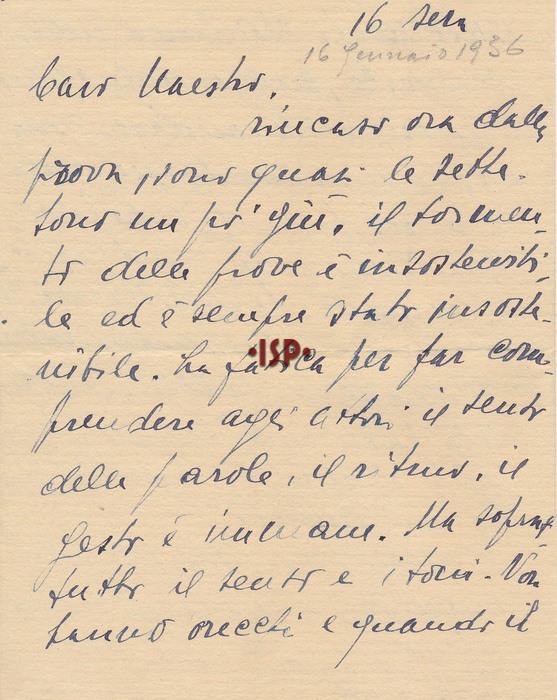 16 sera
16 Gennaio 1936
Caro Maestro,
rincaso ora dalla
prova, sono quasi le sette.
Sono un po' giù, il tormen-
to delle prove è insostenibi-
le ed è sempre stato insoste-
nibile. La fatica per far com-
prendere agli attori il senso
delle parole, il ritmo, il
gesto è immane. Ma soprat-
tutto il senso e i toni. Non
hanno orecchi e quando il
·ISP·